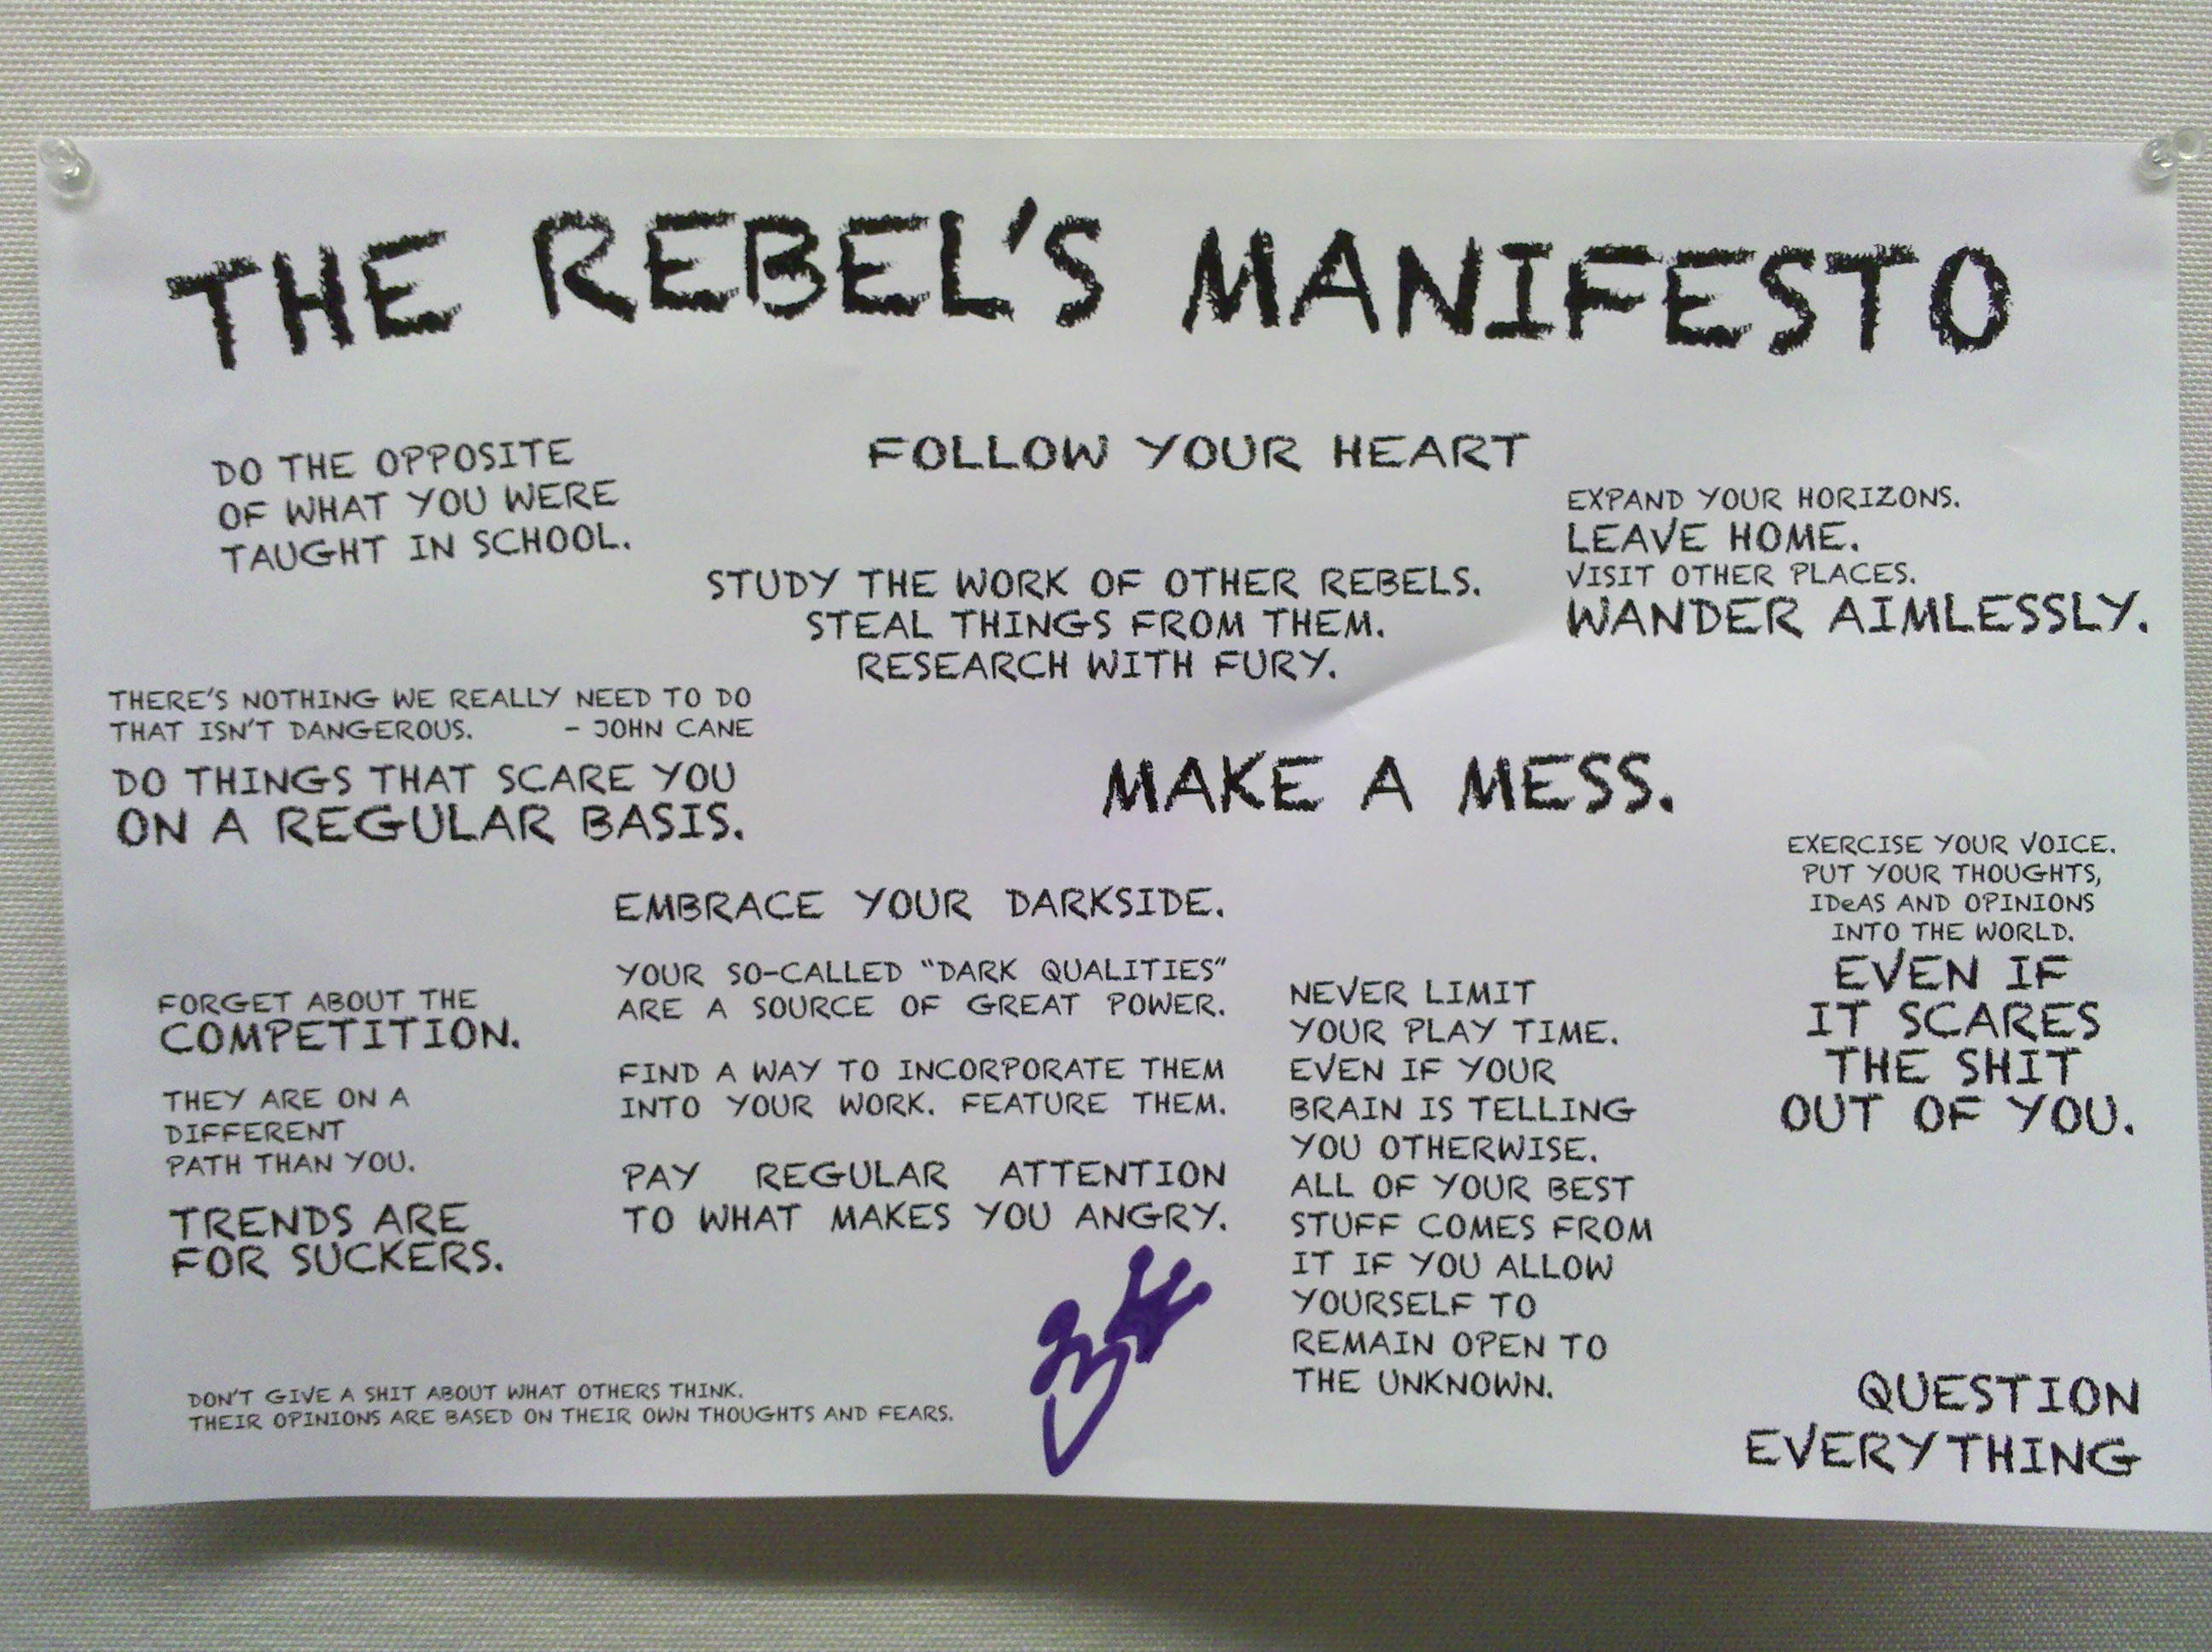 THE REBEL'S MANIFESTO
DO THE OPPOSITE
OF WHAT YOU WERE
TAUGHT IN SCHOOL.
FOLLOW YOUR HEART
EXPAND YOUR HORIZONS.
LEAVE HOME.
VISIT OTHER PLACES.
WANDER AIMLESSLY.
STUDY THE WORK OF OTHER REBELS.
STEAL THINGS FROM THEM.
RESEARCH WITH FURY.
THERE'S NOTHING WE REALLY NEED TO DO
THAT ISN'T DANGEROUS. - JOHN CANE
DO THINGS THAT SCARE YOU
ON A REGULAR BASIS.
MAKE A MESS.
EXERCISE YOUR VOICE.
PUT YOUR THOUGHTS,
IDeAS AND OPINIONS
INTO THE WORLD.
EVEN IF
IT SCARES
THE SHIT
OUT OF YOU.
EMBRACE YOUR DARKSIDE.
YOUR SO-CALLED "DARK QUALITIES"
ARE A SOURCE OF GREAT POWER.
FIND A WAY TO INCORPORATE THEM
INTO YOUR WORK. FEATURE THEM.
PAY REGULAR ATTENTION
TO WHAT MAKES YOU ANGRY.
FORGET ABOUT THE
COMPETITION.
THEY ARE ON A
DIFFERENT
PATH THAN YOU.
TRENDS ARE
FOR SUCKERS.
NEVER LIMIT
YOUR PLAY TIME.
EVEN IF YOUR
BRAIN IS TELLING
YOU OTHERWISE.
ALL OF YOUR BEST
STUFF COMES FROM
IT IF YOU ALLOW
YOURSELF TO
REMAIN OPEN TO
THE UNKNOWN.
DON'T GIVE A SHIT ABOUT WHAT OTHERS THINK.
THEIR OPINIONS ARE BASED ON THEIR OWN THOUGHTS AND FEARS.
QUESTION
EVERYTHING